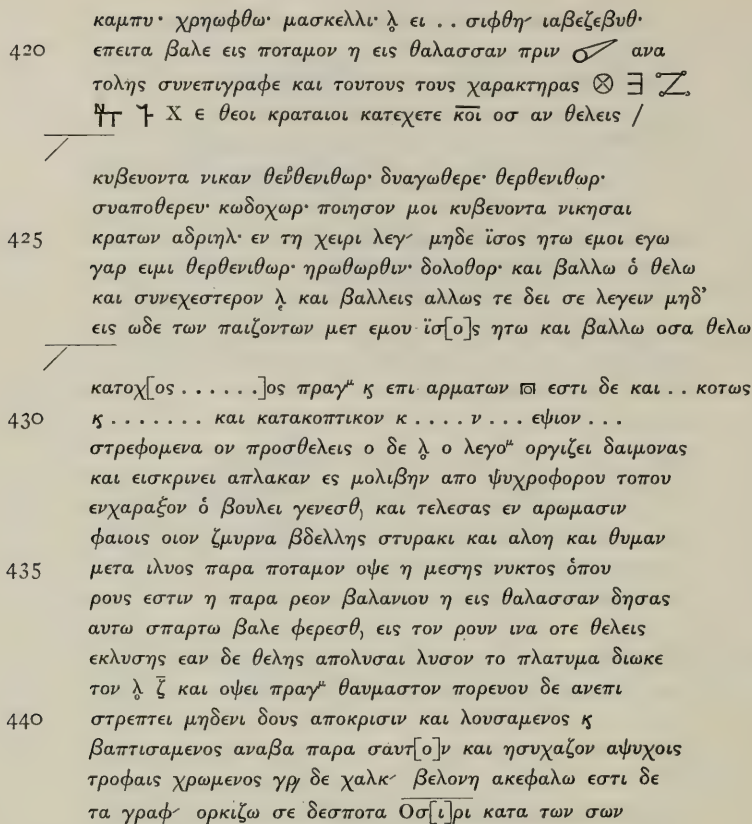 καμπυ· χρηωφθω· μασκελλι· λͦ ει . . σιφθη· ιαβεζεβυθ·
420 επειτα βαλε εις ποταμον η εις θαλασσαν πριν ανα
τολης συνεπιγραφε και τουτους τους χαρακτηρας ⊗ ∃
Χ ϵ θεοι κραταιοι κατεχετε κοι οσ αν θελεις /
κυβευοντα νικαν θενθενιθωρ· δυαγωθερε· θερθενιθωρ·
συαποθερευ· κωδοχωρ· ποιησον μοι κυβευοντα νικησαι
425 κρατων αδριηλ· εν τη χειρι λεγ´ μηδε ϊσος ητω εμοι εγω
γαρ ειμι θερθενιθωρ· ηρωθορθιν· δολοθορ· και βαλλω ὁ θελω
και συνεχεστερον λͅ και βαλλεις αλλως τε δει σε λεγειν μηδ’
εις ωδε των παιζοντων μετ εμου ϊσ[ο]ς ητω και βαλλω οσα θελω
κατοχ[ος . . . . . .]ος πραγᵘ ϗ επι αρματων εστι δε και . . κοτως
430 ϗ . . . . . . . και κατακοπτικον κ . . . . ν . . . εψιον . . .
στρεφομενα ον προσθελεις ο δε λͦ ο λεγοᵘ οργιζει δαιμονας
και εισκρινει απλακαν ες μολιβην απο ψυχροφορου τοπου
ενχαραξον ὁ βουλει γενεσθ, και τελεσας εν αρωμασιν
φαιοις οιον ζμυρνα βδελλης στυρακι και αλοη και θυμαν
435 μετα ιλυος παρα ποταμον οψε η μεσης νυκτος ὁπου
ρους εστιν η παρα ρεον βαλανιου η εις θαλασσαν δησας
αυτω σπαρτω βαλε φερεσθ, εις τον ρουν ινα οτε θελεις
εκλυσης εαν δε θελης απολυσαι λυσον το πλατυμα διωκε
τον λͦ ζ̅ και οψει πραγᵘ θαυμαστον πορευου δε ανεπι
440 στρεπτει μηδενι δους αποκρισιν και λουσαμενος ϗ
βαπτισαμενος αναβα παρα σαυτ[ο]ν και ησυχαζον αψυχοις
τροφαις χρωμενος γρ δε χαλκ´ βελονη ακεφαλω εστι δε
τα γραφ´ ορκιζω σε δεσποτα Οσ[ι]ρι κατα των σων